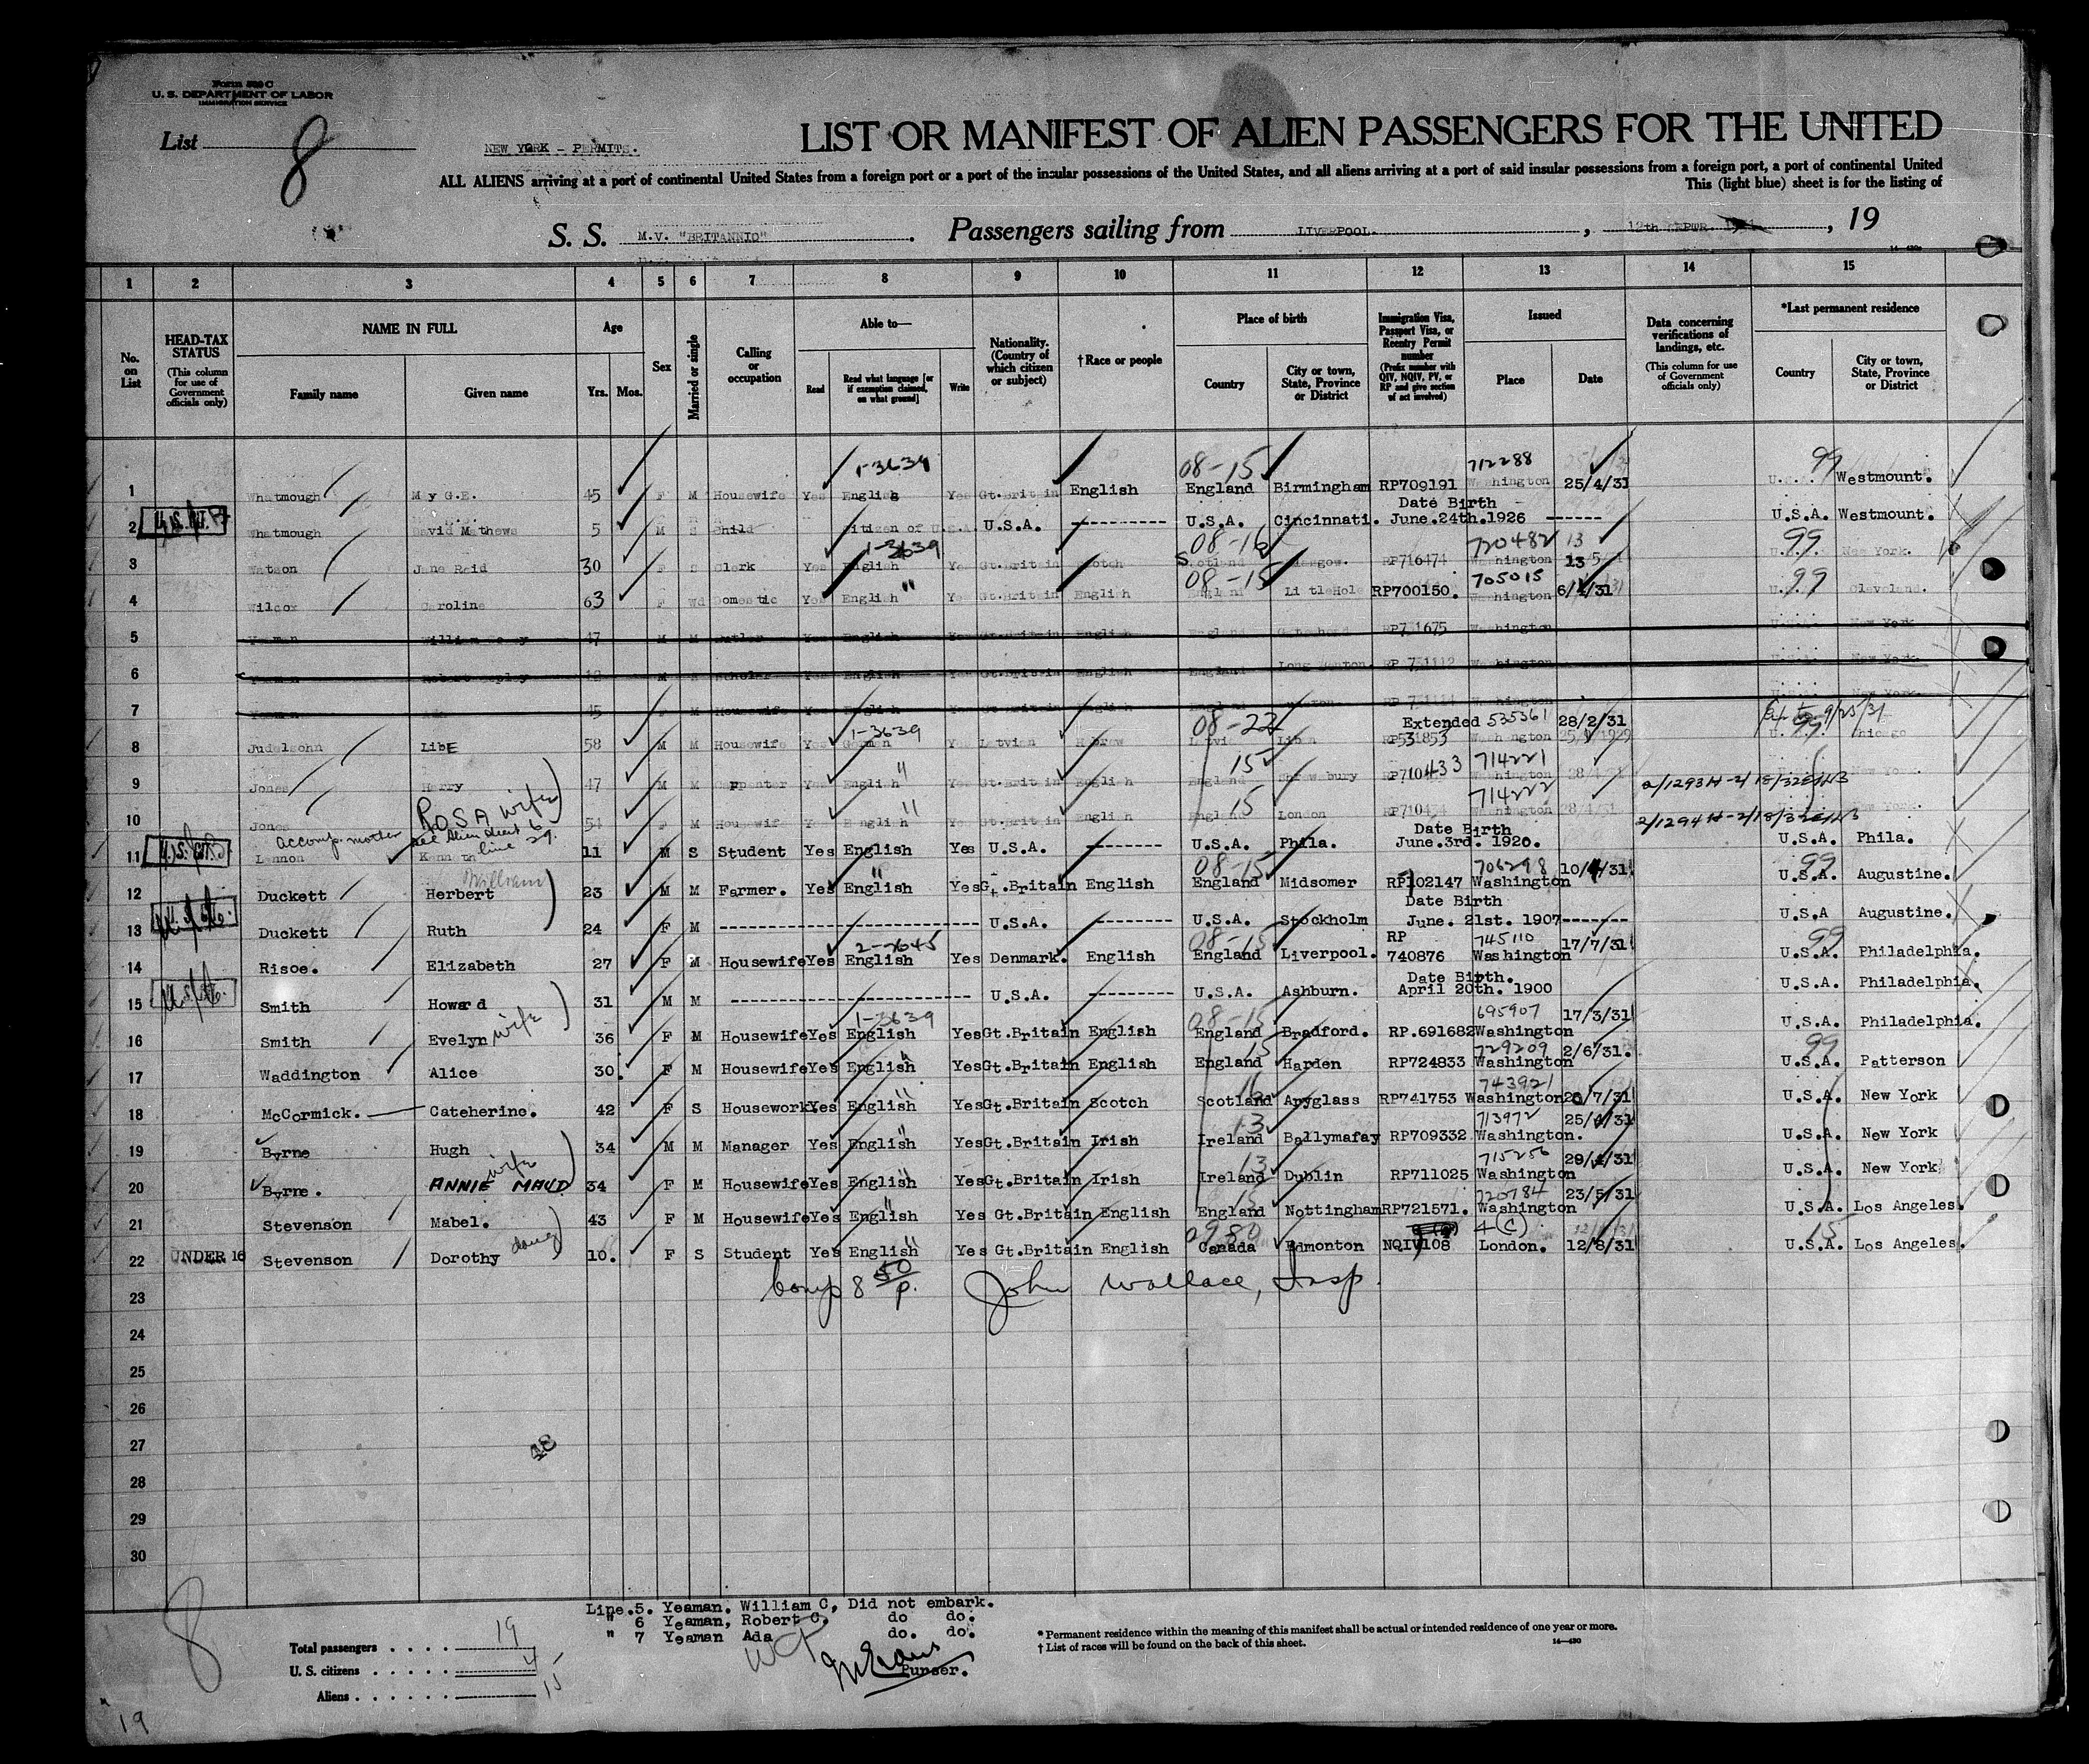 Form 500 C
U. S. DEPARTMENT OF LABOR
IMMIGRATION SERVICE
List 8
NEW YORK - PERMITS.
LIST OR MANIFEST OF ALIEN PASSENGERS FOR THE UNITED
ALL ALIENS arriving at a port of continental United States from a foreign port or a port of the insular possessions of the United States, and all aliens arriving at a port of said insular possessions from a foreign port, a port of continental United
This (light blue) sheet is for the listing of
S. S. M.V. "BRITANNIC" . Passengers sailing from LIVERPOOL. , 12th SEPTR. 1931 , 19
1 2 3 4 5 6 7 8 9 10 11 12 13 14 15
No. on List
HEAD-TAX STATUS (This column for use of Government officials only)
NAME IN FULL
Family name
Given name
Age
Yrs. Mos.
Sex
Married or single
Calling or occupation
Able to—
Read
Read what language [or if exemption claimed, on what ground]
Write
Nationality. (Country of which citizen or subject)
†Race or people
Place of birth
Country
City or town, State, Province or District
Immigration Visa, Passport Visa, or Reentry Permit number (Prefix number with QIV, NQIV, PV, or RP and give section of act involved)
Issued
Place
Date
Data concerning verifications of landings, etc. (This column for use of Government officials only)
*Last permanent residence
Country
City or town, State, Province or District
1-3639 08-15 712288 99
1 Whatmough May G.E. 45 F M Housewife Yes English Yes Gt.Britain English England Birmingham RP709191 Washington 25/4/31 U.S.A. Westmount.
Date Birth
2 Whatmough David Mathews 5 M S Child Citizen of U.S.A. U.S.A. ---------- U.S.A. Cincinnati. June.24th.1926 ------ U.S.A. Westmount.
1-3639 08-16 720482 13 99
3 Watson Jane Reid 30 F S Clerk Yes English Yes Gt.Britain Scotch Scotland Glasgow. RP716474 Washington U.S.A. New York.
" 08-15 705015 99
4 Wilcox Caroline 63 F Wd Domestic Yes English Yes Gt.Britain English England RP700150. Washington U.S.A. Cleveland.
5 Yeaman 47 M M Butler Yes English Yes Gt.Britain English England Washington U.S.A. New York
6 Yeaman M S Scholar Yes English Yes Gt.Britain English England Washington U.S.A. New York.
7 Yeaman Ada 45 F M Housewife Yes English Yes Gt.Britain English Washington U.S.A. New York.
1-3639 08-22 Extended 535361 28/2/31 99
8 Judelsohn LibE 58 M M Housewife Yes German Yes Latvian Hebrew Latvia Libau RP531853 Washington U.S.A. Chicago
" 15 714221
9 Jones Harry 47 M M Carpenter Yes English Yes Gt.Britain English England Shrewsbury RP710433 Washington 28/4/31 New York.
ROSA wife " 15 714222
10 Jones 54 F M Housewife Yes English Yes Gt.Britain English England London Washington 28/4/31 New York.
accomp. mother see Alien sheet 6 line 29. Date Birth
11 Lennon Kenneth 11 M S Student Yes English Yes U.S.A. -------- U.S.A. Phila. June.3rd. 1920. U.S.A. Phila.
William " 08-15 706298 10/4/31 99
12 Duckett Herbert 23 M M Farmer. Yes English Yes Gt.Britain English England Midsomer RP702147 Washington U.S.A. Augustine.
Date Birth
13 Duckett Ruth 24 F M ------------------------ U.S.A. -------- U.S.A. Stockholm June. 21st. 1907------- U.S.A Augustine.
2-2645 08-15 RP 745110 17/7/31 99
14 Risoe. Elizabeth 27 F M Housewife Yes English Yes Denmark. English England Liverpool. 740876 Washington U.S.A. Philadelphia.
Date Birth.
15 Smith Howard 31 M M ---------------------- U.S.A. --------- U.S.A. Ashburn. April 20th. 1900 U.S.A. Philadelphia.
wife 1-3639 08-15 695907 17/3/31
16 Smith Evelyn 36 F M Housewife Yes English Yes Gt.Britain English England Bradford. RP.691682 Washington U.S.A. Philadelphia.
" 15 729209 2/6/31. 99
17 Waddington Alice 30. F M Housewife Yes English Yes Gt.Britain English England Harden RP724833 Washington U.S.A. Patterson
" 16 743921
18 McCormick. Catherine. 42 F S Housework Yes English Yes Gt.Britain Scotch Scotland Apyglass RP741753 Washington 20/7/31 U.S.A. New York
" 13 713972 25/4/31
19 Byrne Hugh 34 M M Manager Yes English Yes Gt.Britain Irish Ireland Ballymafay RP709332 Washington. U.S.A. New York
wife " 13 715256 29/4/31
20 Byrne. ANNIE MAUD 34 F M Housewife Yes English Yes Gt.Britain Irish Ireland Dublin RP711025 Washington U.S.A. New York
" 15 720784 23/5/31
21 Stevenson Mabel. 43 F M Housewife Yes English Yes Gt.Britain English England Nottingham RP721571. Washington U.S.A. Los Angeles.
daug " 0980 4(C) 15
22 UNDER 16 Stevenson Dorothy 10. F S Student Yes English Yes Gt.Britain English Canada Edmonton NQIV108 London. 12/8/31 U.S.A. Los Angeles.
23 John Wallace, Insp.
24
25
26
27
48
28
29
30
Line.5. Yeaman. William C, Did not embark.
" 6 Yeaman, Robert C. do do.
" 7 Yeaman Ada do. do.
Purser.
8
Total passengers . . . . 19
U. S. citizens . . . . . 4
Aliens . . . . . . 15
* Permanent residence within the meaning of this manifest shall be actual or intended residence of one year or more.
† List of races will be found on the back of this sheet.
14—430
19